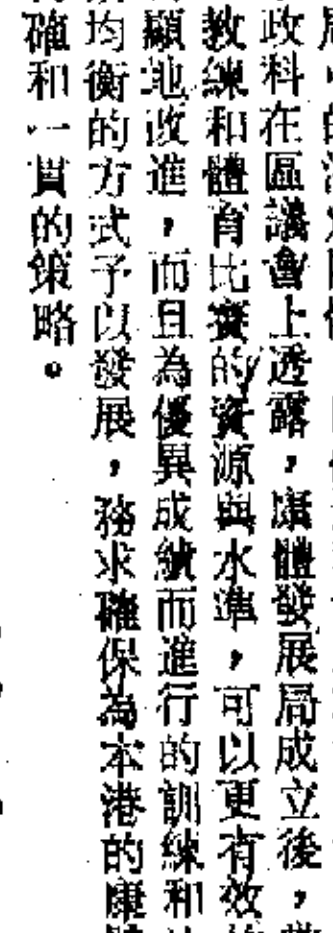 政科在區議會上透露，康體發展局成立後，
教練和體育比賽的資源與水準，可以更有效
顯地改進，而且為優異成績而進行的訓練和
均衡的方式予以發展，務求確保為本港的康
確和一貫的策略。